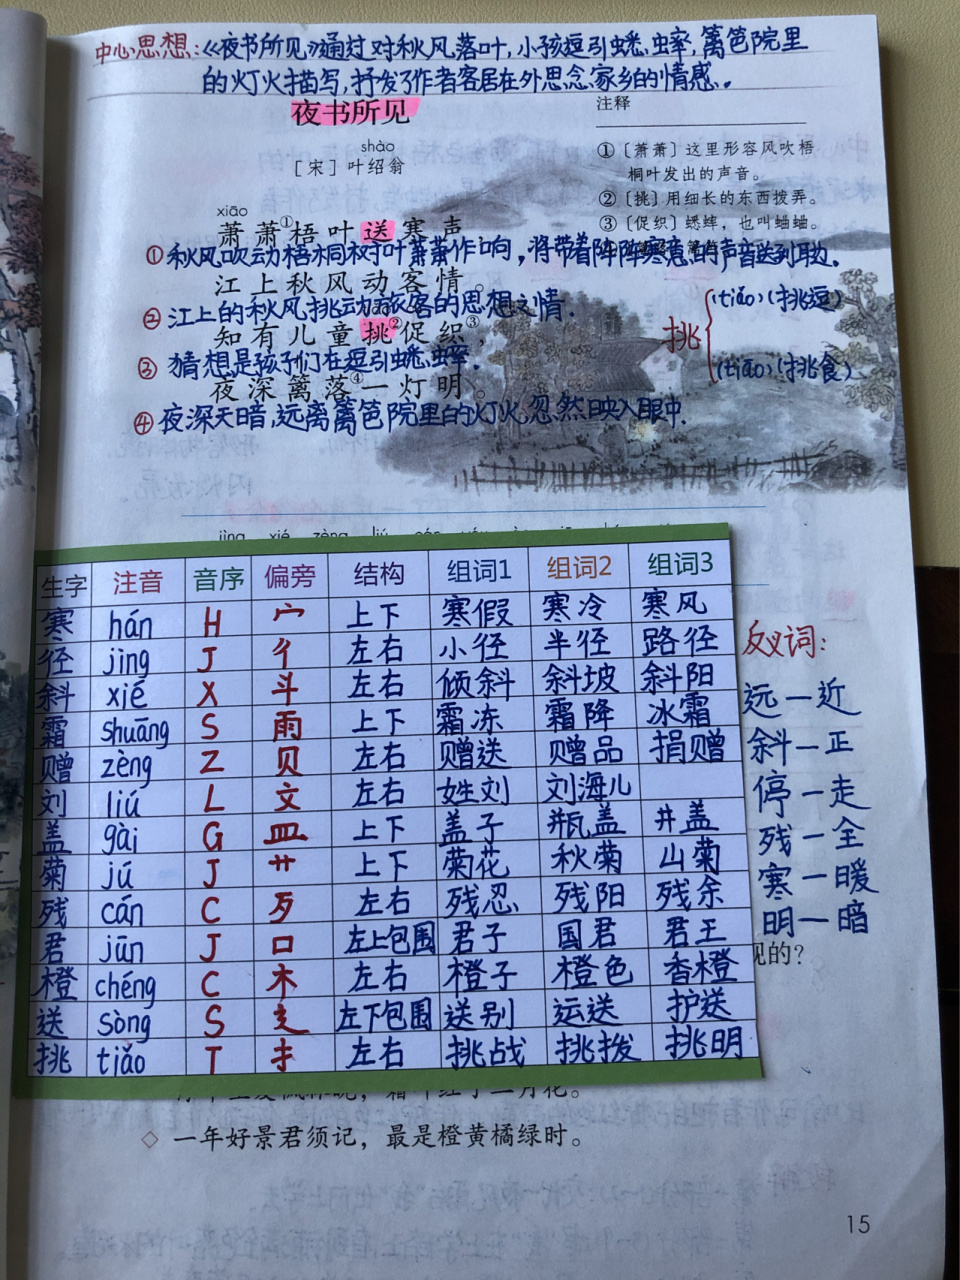 中心思想:《夜书所见》通过对秋风落叶,小孩逗引蟋蟀,篱笆院里
的灯火描写,抒发了作者客居在外思念家乡的情感。
夜书所见
shào
[宋] 叶绍翁
注释
①〔萧萧〕这里形容风吹梧
桐叶发出的声音。
②〔挑〕用细长的东西拨弄。
③〔促织〕蟋蟀,也叫蛐蛐。
xiāo
萧萧①梧叶送寒声,
①秋风吹动梧桐树叶萧萧作响,将带着阵阵寒意的声音送到耳边.
江上秋风动客情。
②江上的秋风挑动旅客的思想之情.
知有儿童挑②促织③,
③猜想是孩子们在逗引蟋蟀.
夜深篱落④一灯明。
④夜深天暗,远离篱笆院里的灯火忽然映入眼中.
挑
(tiǎo)(挑逗)
(tiāo)(挑食)
生字 注音 音序 偏旁 结构 组词1 组词2 组词3
寒 hán H 宀 上下 寒假 寒冷 寒风
径 jìng J 彳 左右 小径 半径 路径
斜 xié X 斗 左右 倾斜 斜坡 斜阳
霜 shuāng S 雨 上下 霜冻 霜降 冰霜
赠 zèng Z 贝 左右 赠送 赠品 捐赠
刘 liú L 文 左右 姓刘 刘海儿
盖 gài G 皿 上下 盖子 瓶盖 井盖
菊 jú J 艹 上下 菊花 秋菊 山菊
残 cán C 歹 左右 残忍 残阳 残余
君 jūn J 口 左上包围 君子 国君 君王
橙 chéng C 木 左右 橙子 橙色 香橙
送 sòng S 辶 左下包围 送别 运送 护送
挑 tiǎo T 扌 左右 挑战 挑拨 挑明
反义词:
远—近
斜—正
停—走
残—全
寒—暖
明—暗
现的?
◇ 一年好景君须记,最是橙黄橘绿时。
15